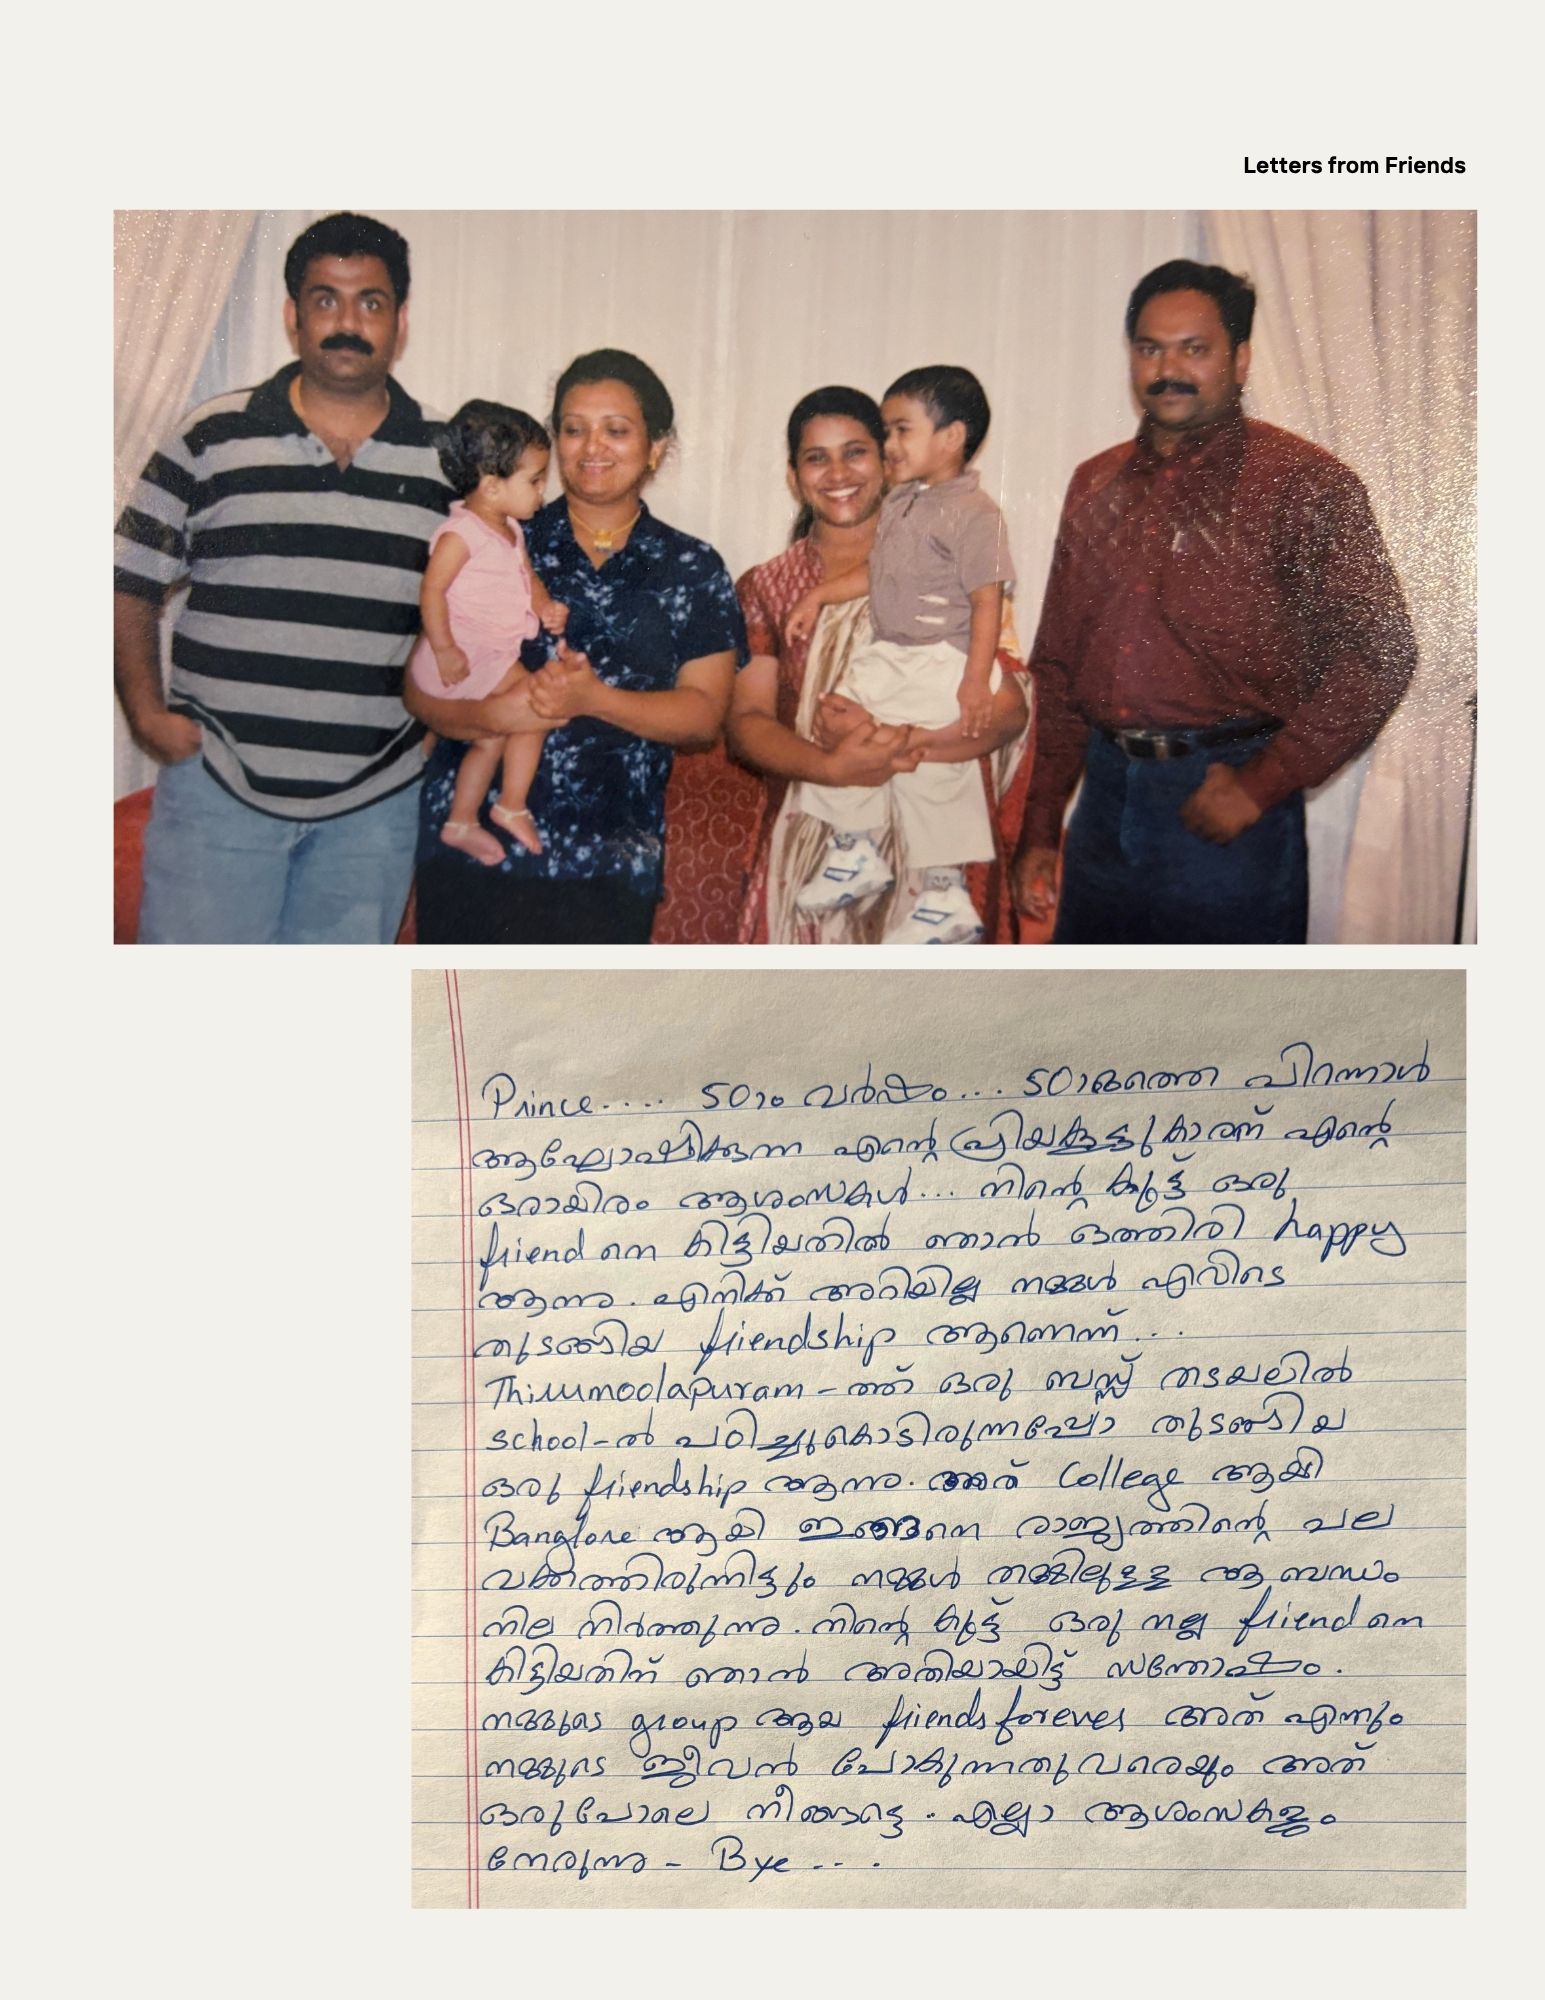 Letters from Friends
Prince.... 50ാം വർഷം... 50ാമത്തെ പിറന്നാൾ
ആഘോഷിക്കുന്ന എന്റെ പ്രിയകൂട്ടുകാരന് എന്റെ
ഒരായിരം ആശംസകൾ... നിന്റെ കൂട്ട് ഒരു
friend നെ കിട്ടിയതിൽ ഞാൻ ഒത്തിരി happy
ആന്നു. എനിക്ക് അറിയില്ല നമ്മൾ എവിടെ
തുടങ്ങിയ friendship ആണെന്ന്...
Thirumoolapuram - ത്ത് ഒരു ബസ്സ് തടയലിൽ
school-ൽ പഠിച്ചുകൊടിരുന്നപ്പോ തുടങ്ങിയ
ഒരു friendship ആന്നു. അത് College ആയി
Banglore ആയി ഇങ്ങനെ രാജ്യത്തിന്റെ പല
വക്കത്തിരുന്നിട്ടും നമ്മൾ തമ്മിലുള്ള ആ ബന്ധം
നില നിർത്തുന്നു. നിന്റെ കൂട്ട് ഒരു നല്ല friend നെ
കിട്ടിയതിന് ഞാൻ അതിയായിട്ട് സന്തോഷം.
നമ്മുടെ group ആയ friends forever അത് എന്നും
നമ്മുടെ ജീവൻ പോകുന്നതുവരെയും അത്
ഒരുപോലെ നീങ്ങട്ടെ. എല്ലാ ആശംസകളും
നേരുന്നു - Bye ...